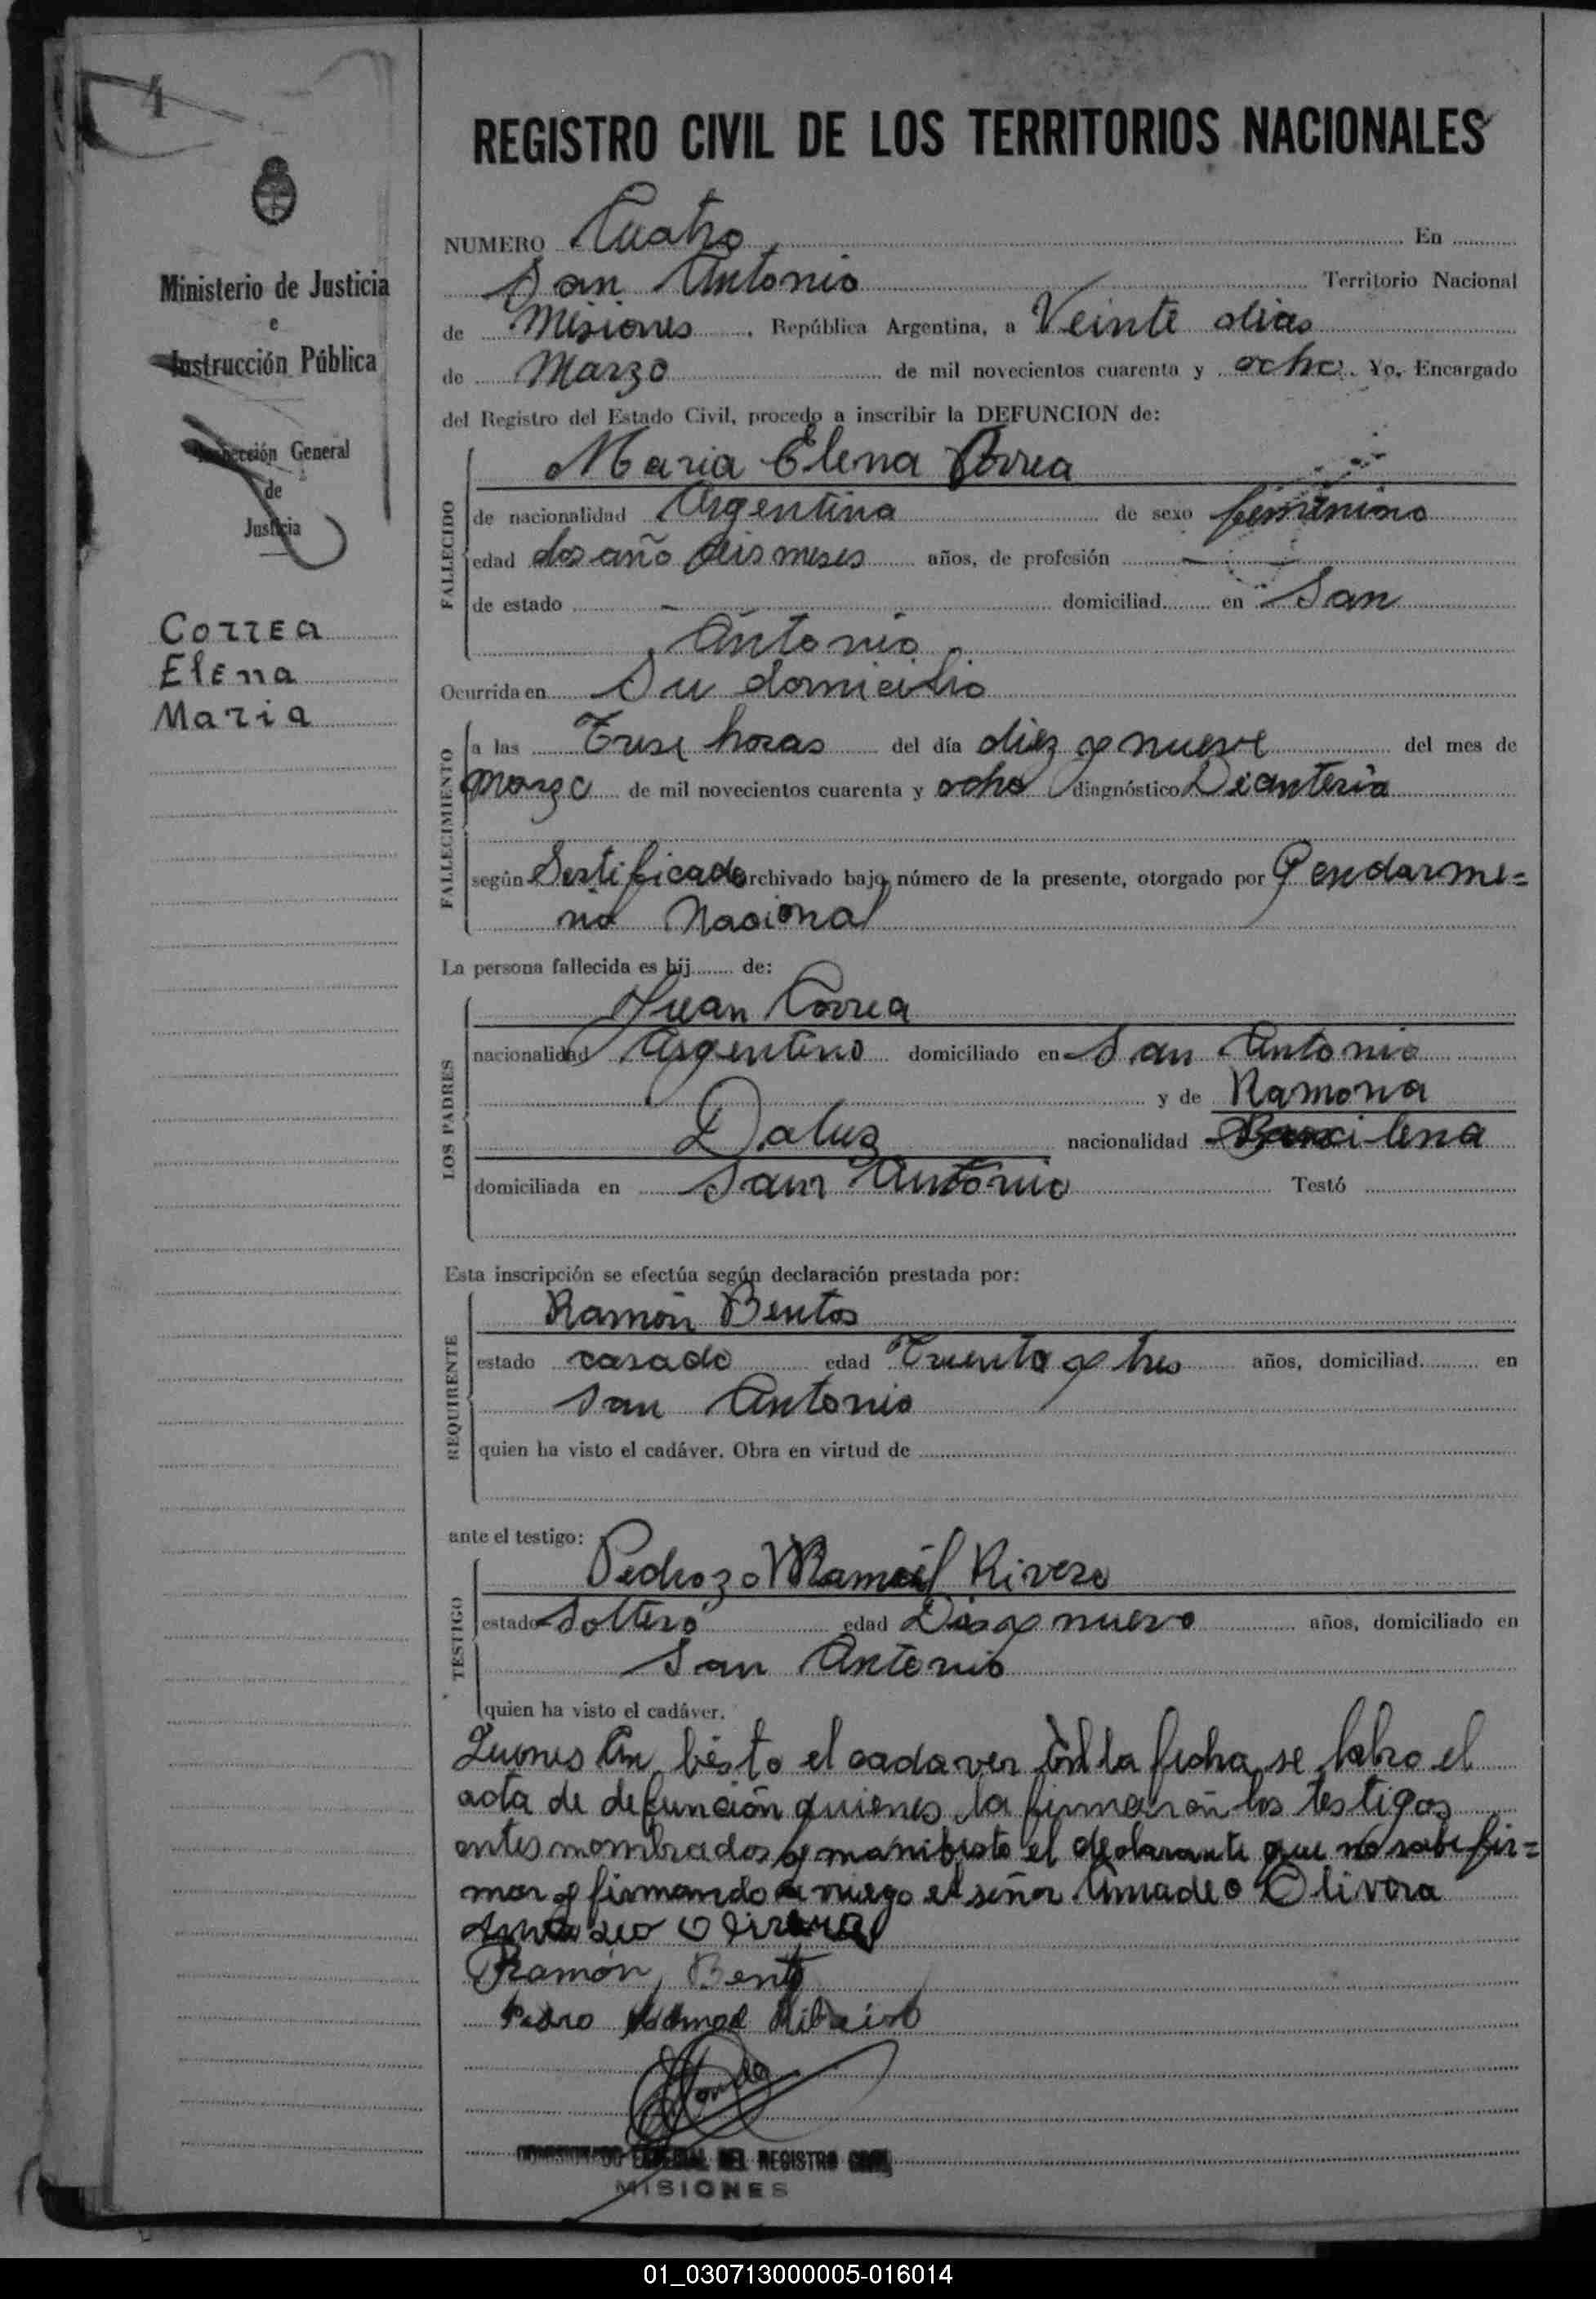 4
REGISTRO CIVIL DE LOS TERRITORIOS NACIONALES
Ministerio de Justicia
e
Instrucción Pública
Inspección General
de
Justicia
Correa
Elena
Maria
NUMERO Cuatro En
San Antonio Territorio Nacional
de Misiones, República Argentina, a Veinte dias
de Marzo de mil novecientos cuarenta y ocho. Yo, Encargado
del Registro del Estado Civil, procedo a inscribir la DEFUNCION de:
FALLECIDO
Maria Elena Correa
de nacionalidad Argentina de sexo femenino
edad dos año seis meses años, de profesión —
de estado — domiciliad en San
Antonio
Ocurrida en Su domicilio
FALLECIMIENTO
a las Trese horas del día diez y nueve del mes de
Marzo de mil novecientos cuarenta y ocho diagnóstico Dicanteria
según Sertificado archivado bajo número de la presente, otorgado por Gendarme=
ria Nacional
La persona fallecida es hij de:
LOS PADRES
Juan Correa
nacionalidad Argentino domiciliado en San Antonio
y de Ramona
Daluz nacionalidad Braxilena
domiciliada en San Antonio Testó
Esta inscripción se efectúa según declaración prestada por:
REQUIRENTE
Ramón Bentos
estado casado edad Treinta y tres años, domiciliad en
San Antonio
quien ha visto el cadáver. Obra en virtud de
ante el testigo:
TESTIGO
Pedrozo Manoel Rivero
estado Soltero edad Dies y nuevo años, domiciliado en
San Antonio
quien ha visto el cadáver.
el cadaver la fecha se labro el
acta de defunción quienes la firmarón los testigos
antes nombrados y manifiesto el declarante que no sabe fir=
mar y firmando a ruego el señor Amadeo Olivera
Amadeo Olivera
Ramón Bento
Pedro Manoel Ribeiro
COMISIONADO ESPECIAL DEL REGISTRO CIVIL
MISIONES
01_030713000005-016014